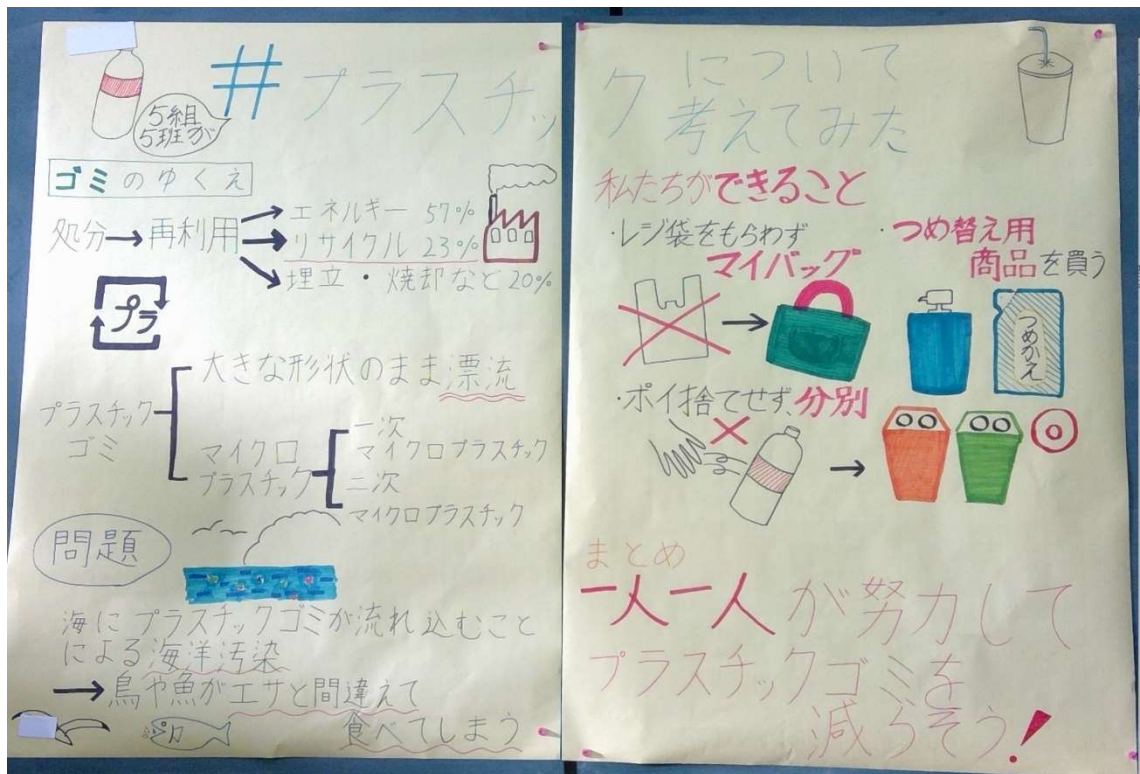 5組
5班が
#プラスチック について
考えてみた
ゴミのゆくえ
処分→再利用
エネルギー 57%
リサイクル 23%
埋立・焼却など20%
プラ
プラスチック
ゴミ
大きな形状のまま漂流
マイクロ
プラスチック
一次
マイクロプラスチック
二次
マイクロプラスチック
問題
海にプラスチックゴミが流れ込むこと
による海洋汚染
→鳥や魚がエサと間違えて
食べてしまう
私たちができること
・レジ袋をもらわず
マイバッグ
・つめ替え用
商品を買う
つめかえ
・ポイ捨てせず、分別
まとめ
一人一人が努力して
プラスチックゴミを
減らそう!